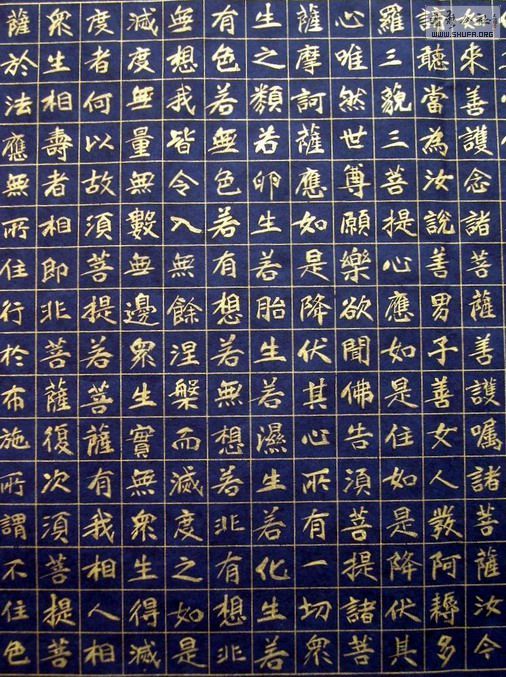 來善護念諸菩薩善護囑諸菩薩汝今
聽當為汝說善男子善女人發阿耨多
羅三藐三菩提心應如是住如是降伏其
心唯然世尊願樂欲聞佛告須菩提諸菩
薩摩訶薩應如是降伏其心所有一切眾
生之類若卵生若胎生若濕生若化生若
有色若無色若有想若無想若非有想非
無想我皆令入無餘涅槃而滅度之如是
滅度無量無數無邊眾生實無眾生得滅
度者何以故須菩提若菩薩有我相人相
眾生相壽者相即非菩薩復次須菩提菩
薩於法應無所住行於布施所謂不住色
WWW.SHUFA.ORG